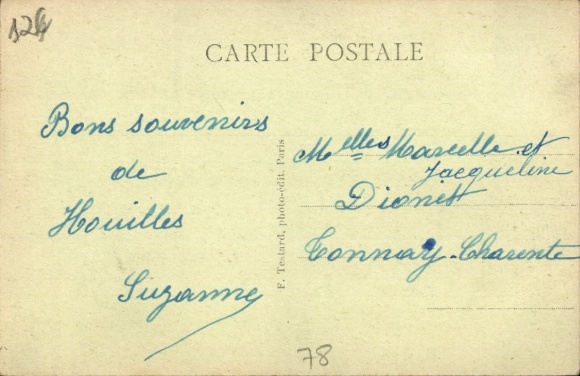 124
CARTE POSTALE
Bons souvenirs
de
Houilles
Suzanne
F. Testard, photo-édit. Paris
Melles Marcelle et
Jacqueline
Dionet
Tonnay-Charente
78